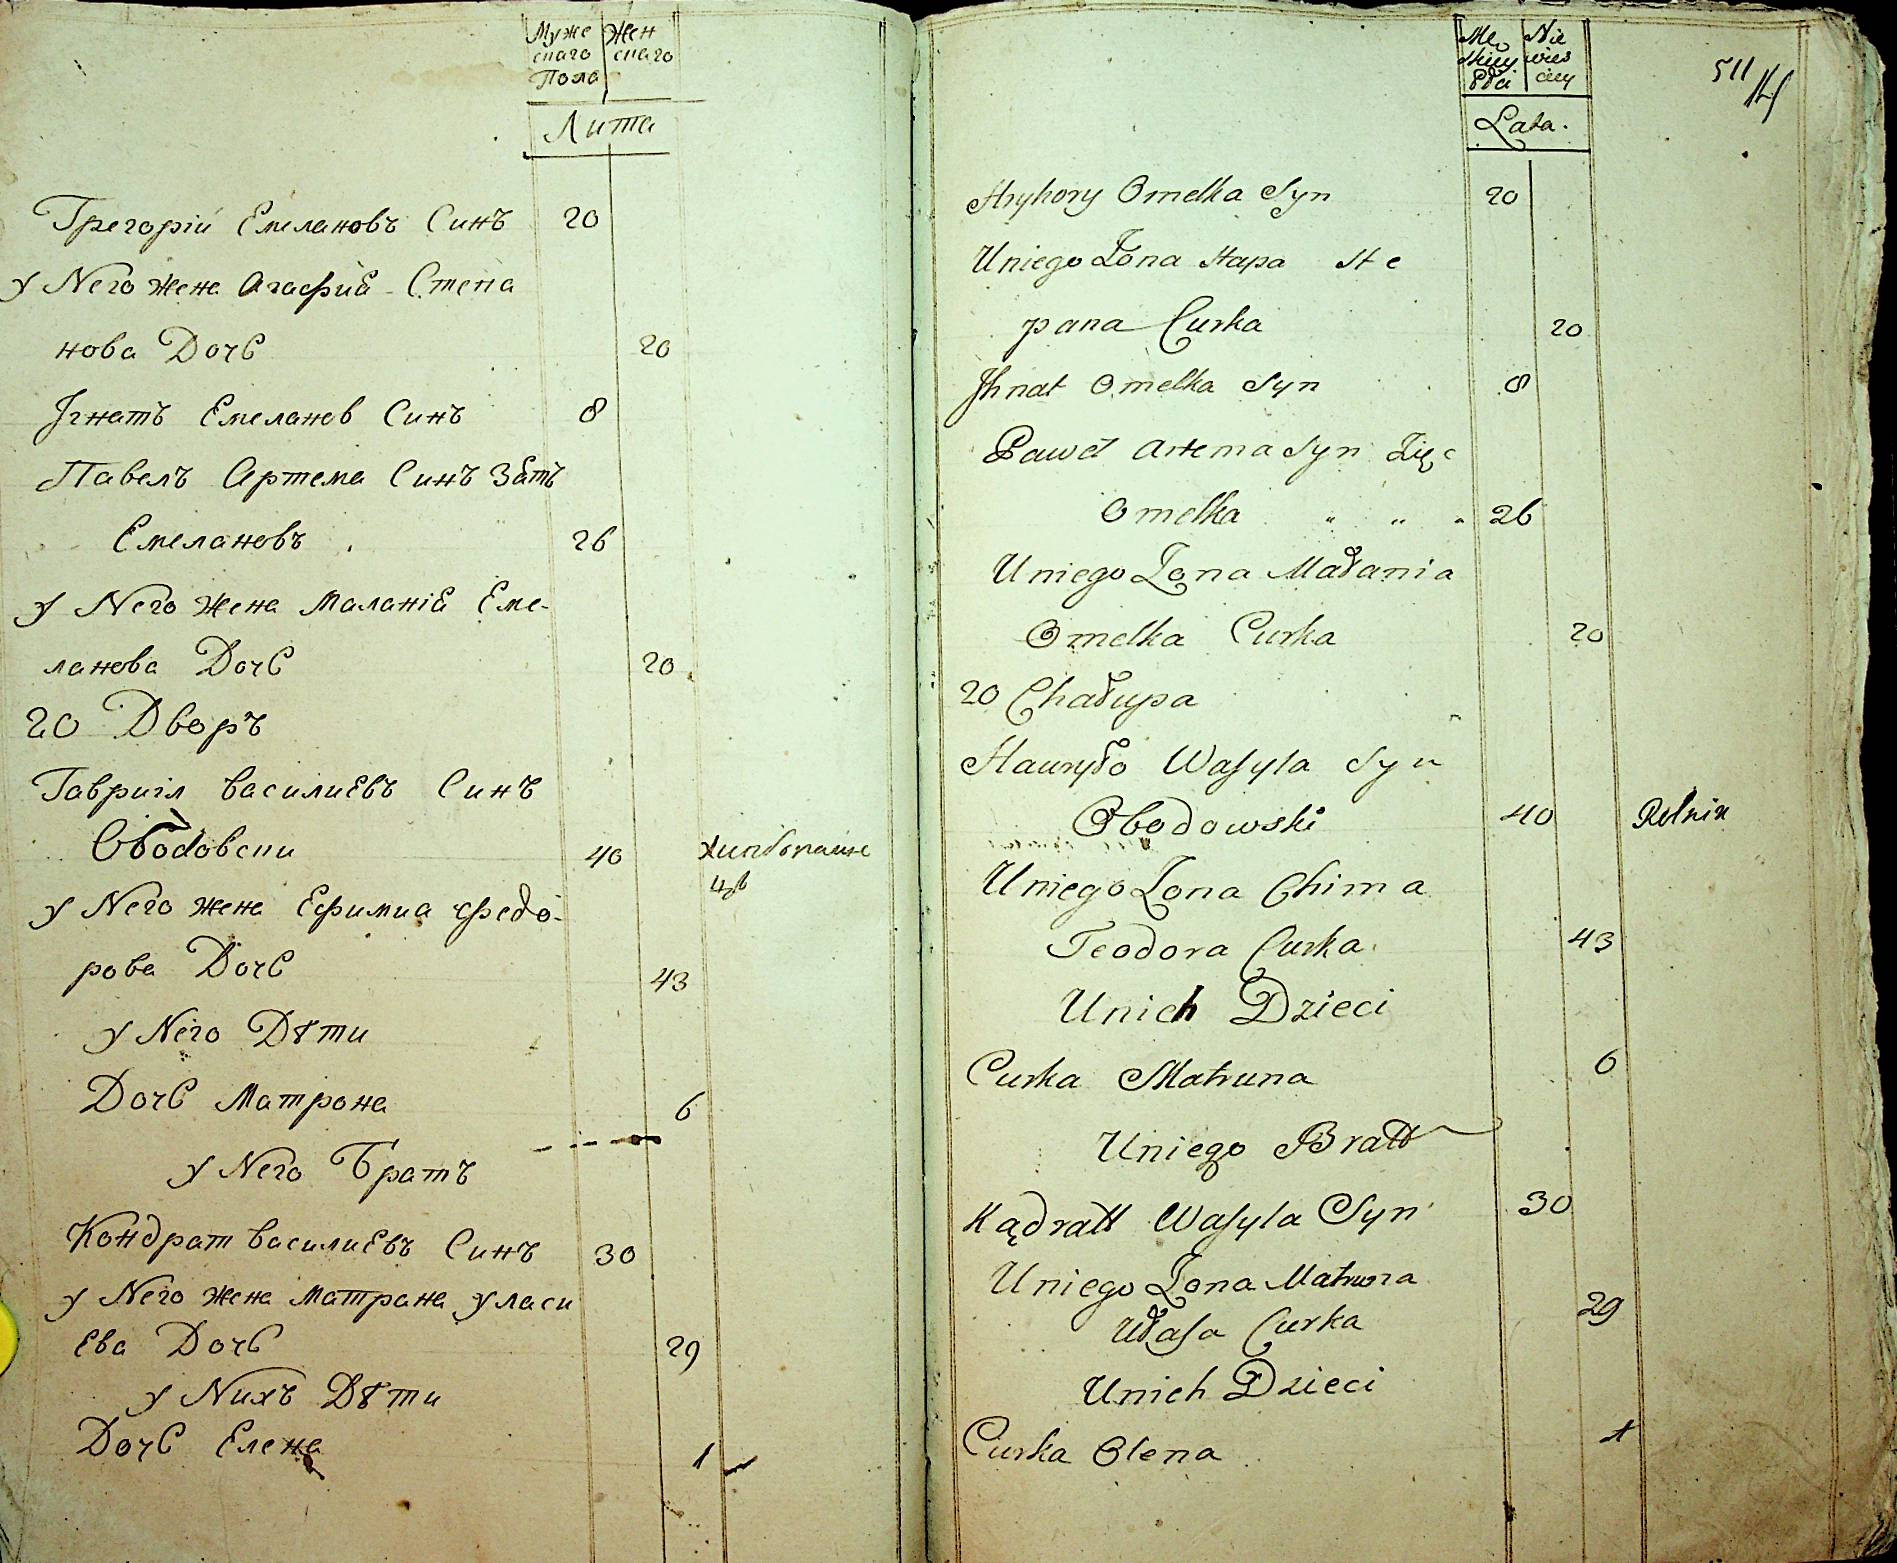 Муже Жен
скаго скаго
Пола
Лита
Григорій Емелановъ Синъ 20
У Nего жена Агафиѣ Степа
нова Дочь 20
Ігнатъ Емеланов Синъ 8
Павелъ Артема Синъ Зѣтъ
Емелановъ 26
У Nего жена Маланіѣ Еме-
ланова Дочь 20
20 Дворъ
Гавриіл Василиевъ Синъ
Ободовски 40
У Nего жена Ефимиа Федо-
рова Дочь 43
У Nего Дѣти
Дочь Матрона 6
У Nего Братъ
Кондрат Василиевъ Синъ 30
У Nего жена Матрана Уласи
ева Дочь 29
У Nихъ Дѣти
Дочь Елена 1
Mę Nie
skiey wies
Płci ciey
511
14
Lata.
Hryhory Omelka Syn 20
Uniego Żona Hapa Ste
pana Curka 20
Jhnat Omelka Syn 8
Paweł Artema Syn Zięc
Omelka " " " 26
Uniego Żona Małania
Omelka Curka 20
20 Chałupa
Hawryło Wasyla Syn
Obodowski 40 Rolnik
Uniego Żona Chima
Teodora Curka 43
Unich Dzieci
Curka Matruna 6
Uniego Bratt
Kądratt Wasyla Syn 30
Uniego Żona Matruna
Ułasa Curka 29
Unich Dzieci
Curka Olena 1